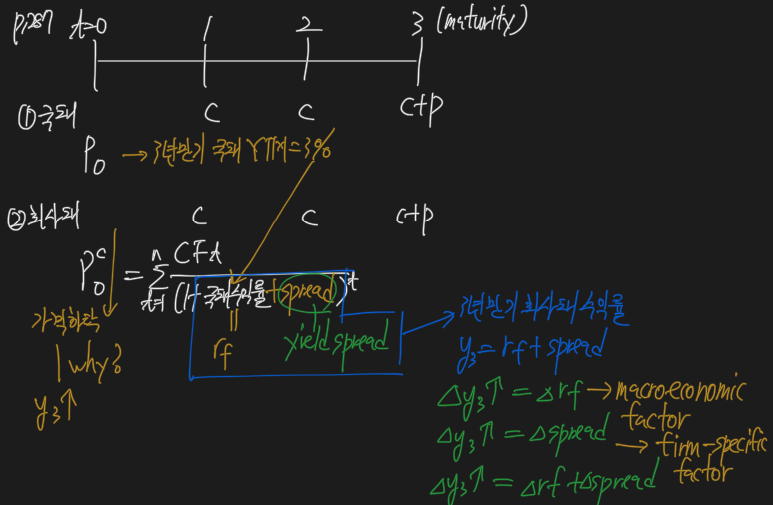 p.287 t=0 1 2 3 (maturity)
①국채 C C C+P
P₀ → 3년만기 국채 YTM=3%
②회사채 C C C+P
P₀ᶜ = Σ(t=1, n) CFt / (1+국채수익률+spread)^t
가격하락
why?
y₃↑
rf
yield spread
3년만기 회사채 수익률
y₃ = rf + spread
Δy₃↑ = Δrf → macroeconomic factor
Δy₃↑ = Δspread → firm-specific factor
Δy₃↑ = Δrf + Δspread